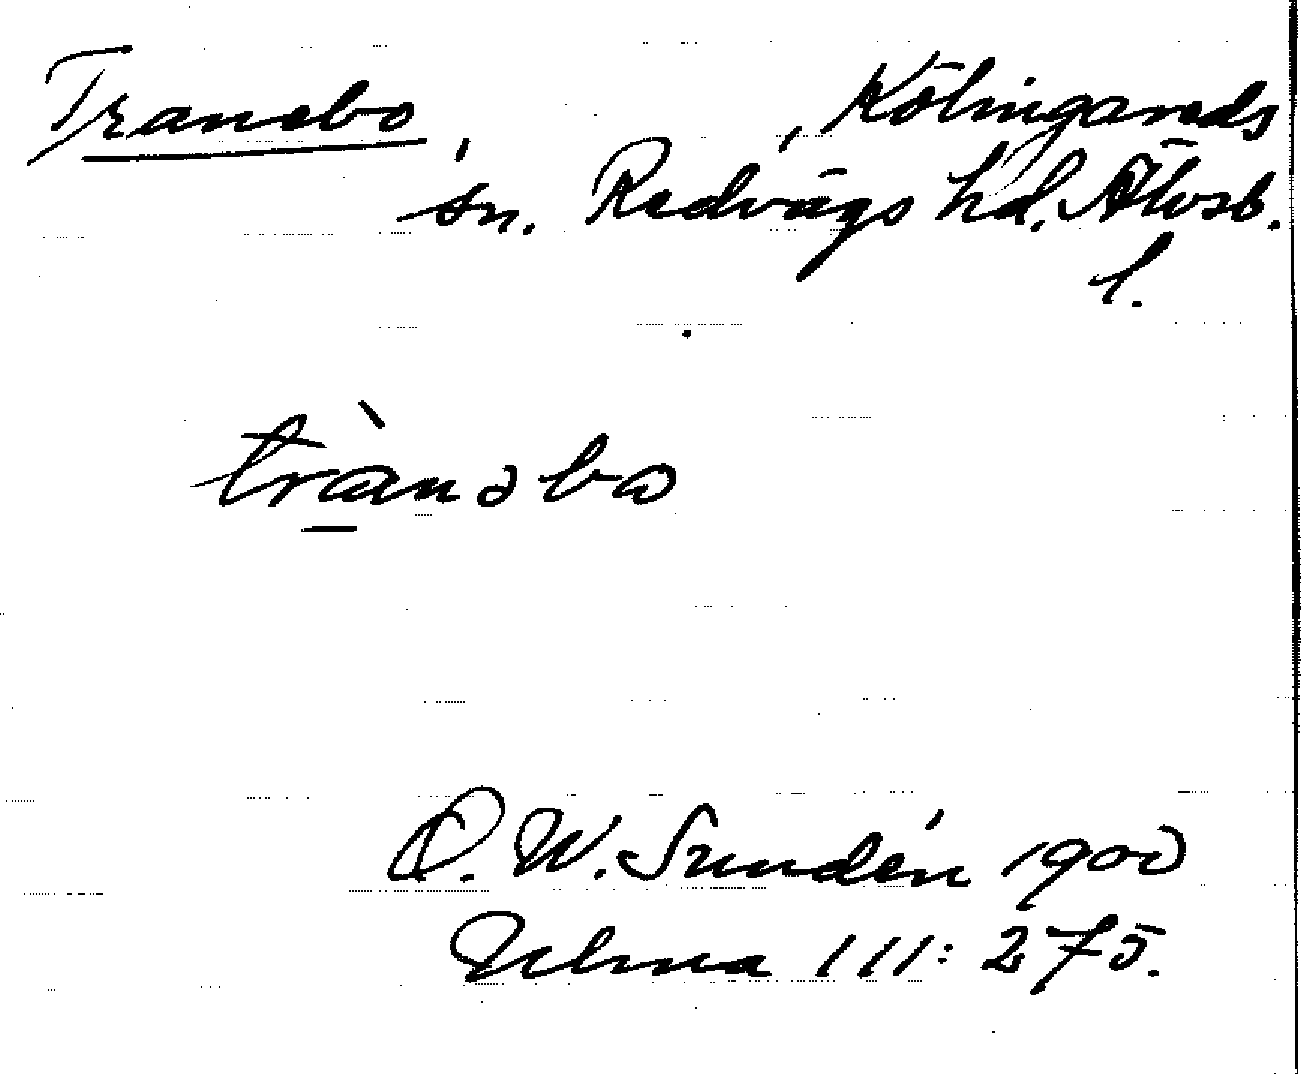 Tranebo, Kölingareds
sn. Redvägs hd. Älvsb.
l.
trànəbo
D. W. Sundén 1900
Ulma 111: 275.